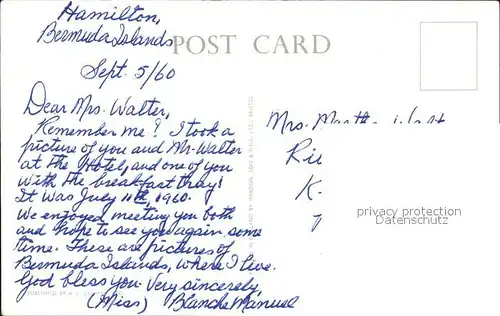 Hamilton,
Bermuda Islands
POST CARD
Sept. 5/60
Dear Mrs. Walter,
Remember me? I took a
picture of you and Mr. Walter
at the Hotel, and one of you
with the breakfast tray!
It was July 11th, 1960.
We enjoyed meeting you both
and hope to see you again some
time. These are pictures of
Bermuda Islands, where I live.
God bless you. Very sincerely,
(Miss) Blanche Manuel
Mrs.
privacy protection
Datenschutz